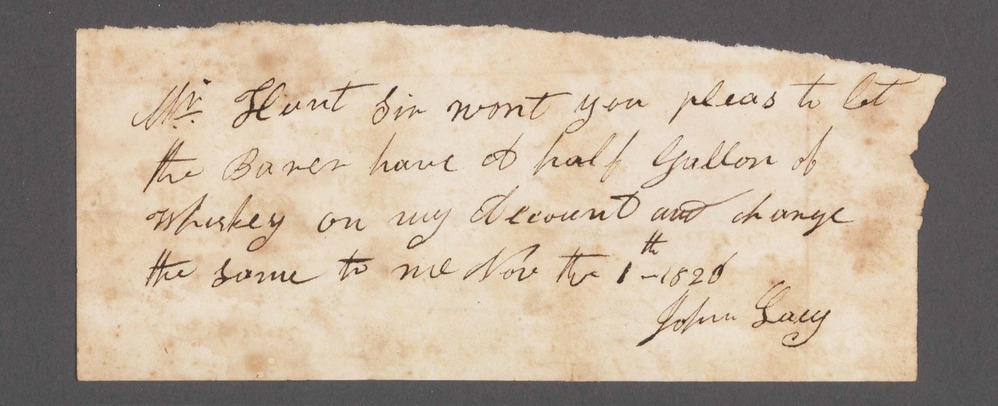 Mr. Hunt Sir wont you pleas to let
the Barer have A half Gallon of
Whiskey on my Account and change
the same to me Nov the 1th 1826
John Lacy